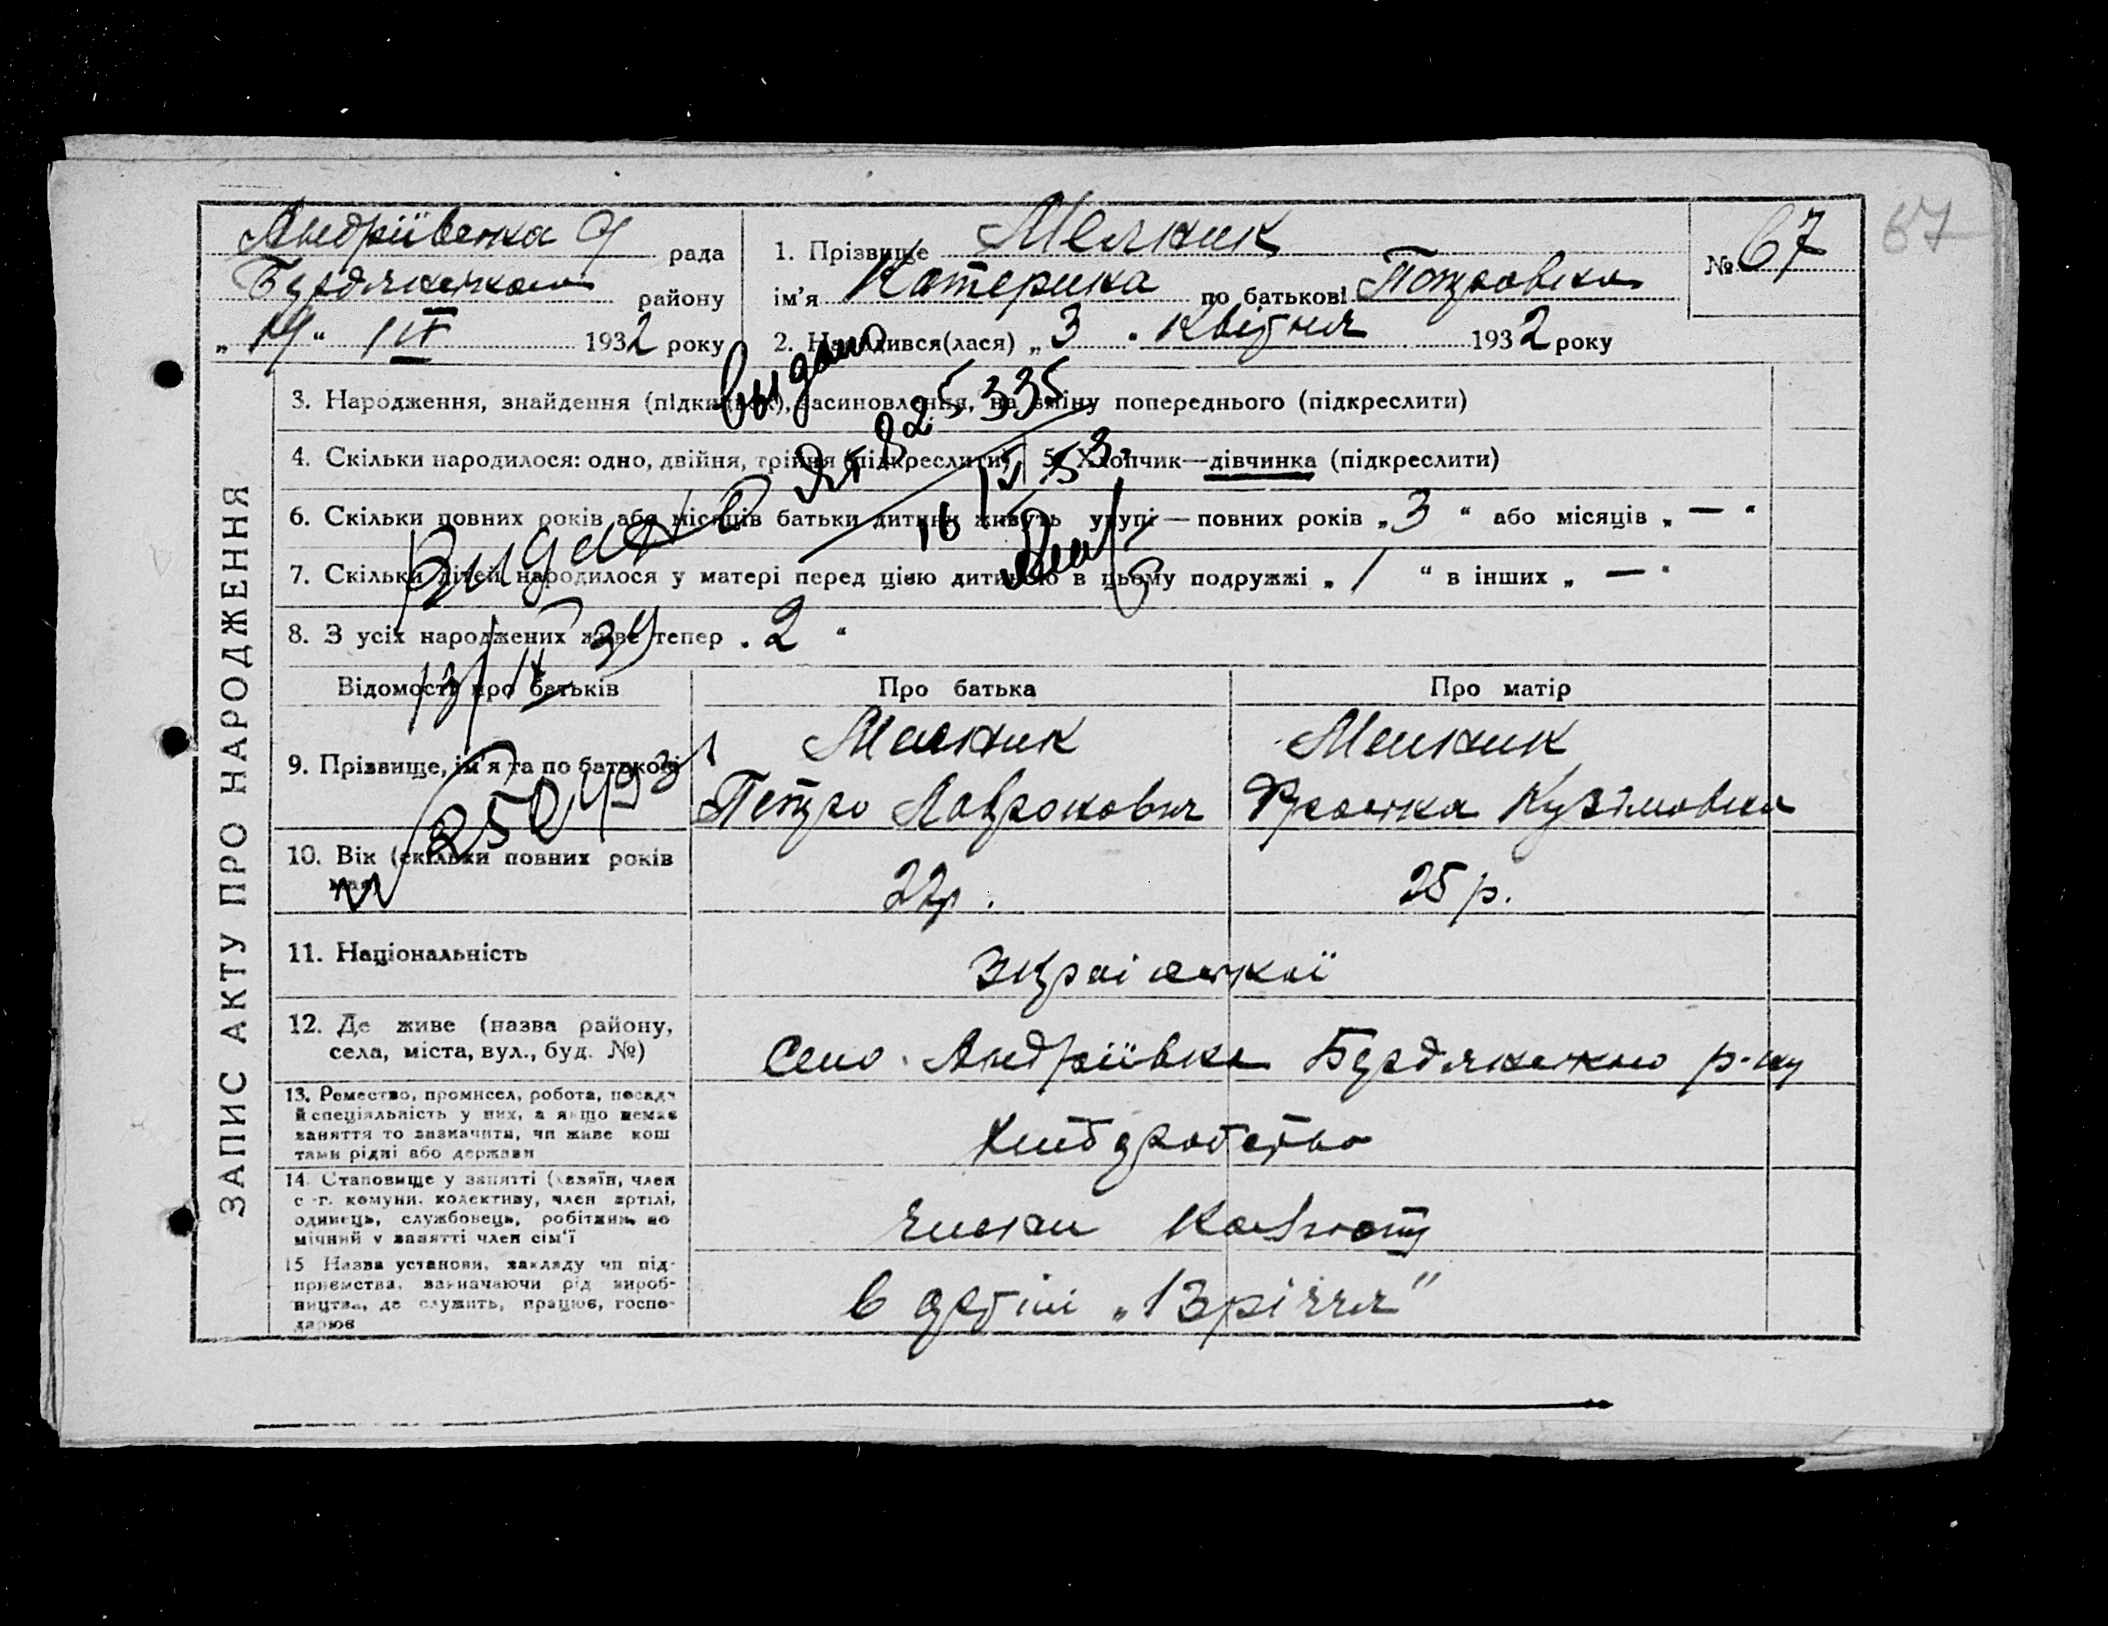 Андріївська рада
Бердянського району
„19“ IV 1932 року
1. Прізвище Мелник
ім'я Катерина по батькові Петровна
2. Народився(лася) „3“ Квітня 1932 року
№ 67
67
ЗАПИС АКТУ ПРО НАРОДЖЕННЯ
3. Народження, знайдення (підкидьки), засиновлення, на зміну попереднього (підкреслити)
4. Скільки народилося: одно, двійня, трійня (підкреслити) 5. Хлопчик—дівчинка (підкреслити)
6. Скільки повних років або місяців батьки дитини живуть укупі—повних років „3“ або місяців „—“
7. Скільки дітей народилося у матері перед цією дитиною в цьому подружжі „1“ в інших „—“
8. З усіх народжених живе тепер „2“
выдано
825335
Видано
Відомості про батьків Про батька Про матір
9. Прізвище, ім'я та по батькові Мелник Мелник
Петро Кузімовна
10. Вік (скільки повних років має) 22р. 25 р.
11. Національність
12. Де живе (назва району, села, міста, вул., буд. №) Село Андріївка Бердянського р-ну
13. Ремество, промисел, робота, посада й спеціяльність у них, а якщо немає заняття то зазначити, чи живе коштами рідні або держави хліборобство
14. Становище у занятті (хазяїн, член с.-г. комуни, колективу, член артілі, одинець, службовець, робітник, помічний у занятті член сім'ї члени
15 Назва установи, закладу чи підприємства, зазначаючи рід виробництва, де служить, працює, господарює в артілі „13річчя“